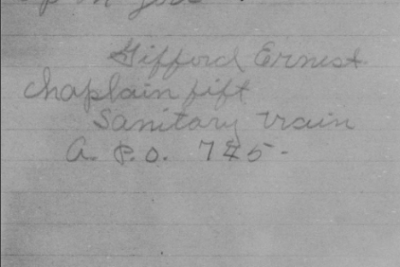 up in you
Gifford Ernest
Chaplain fift
Sanitary train
A. P. O. 745-